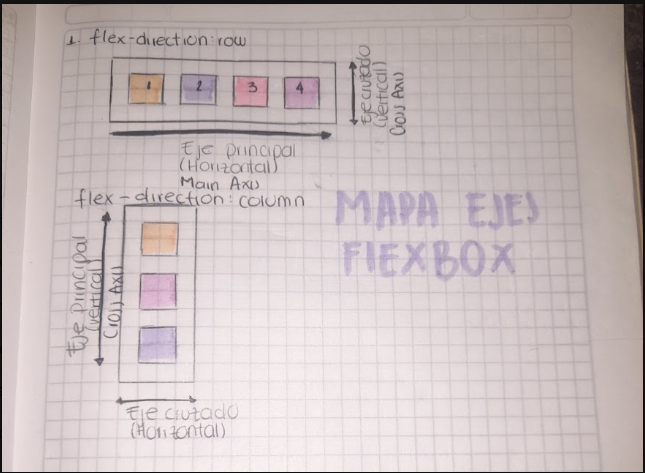 1. flex-direction: row
1 2 3 4
Eje cruzado
(vertical)
Cross Axis
Eje principal
(Horizontal)
Main Axis
flex-direction: column
MAPA EJES
FlEXBOX
Eje principal
(vertical)
Cross Axis
Eje cruzado
(Horizontal)